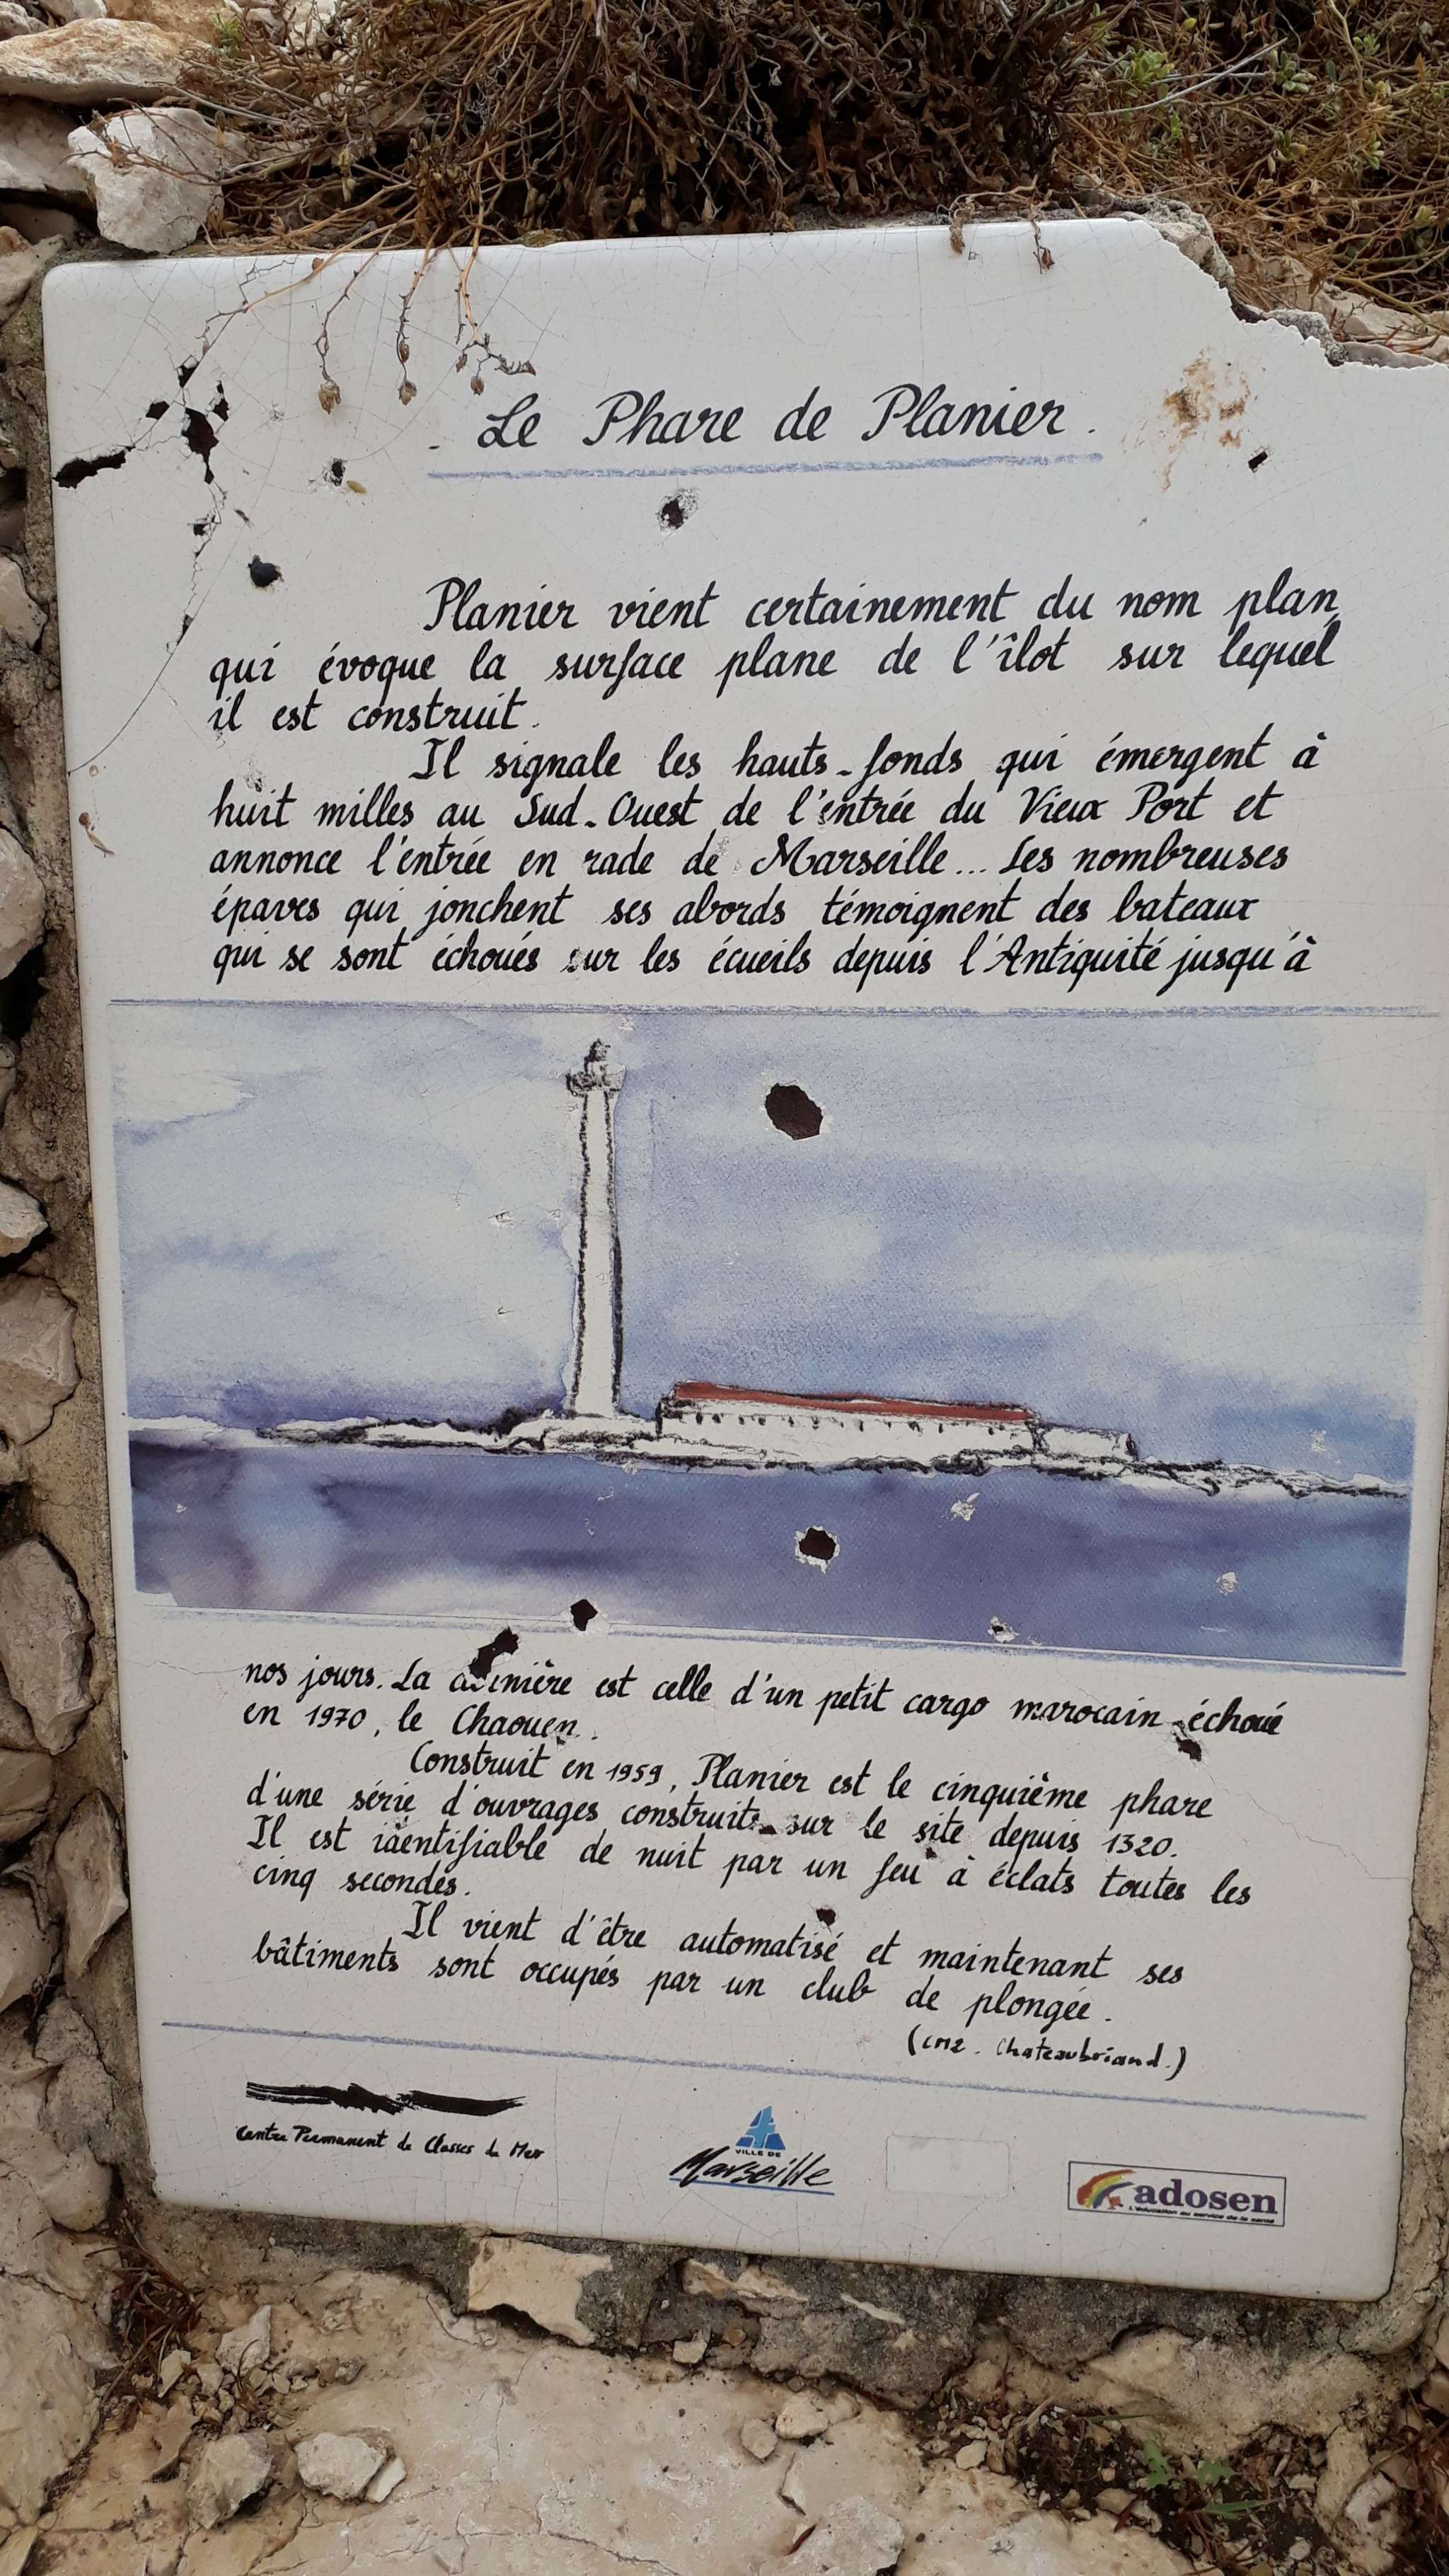 . Le Phare de Planier .
Planier vient certainement du nom plan
qui évoque la surface plane de l'îlot sur lequel
il est construit.
Il signale les hauts-fonds qui émergent à
huit milles au Sud-Ouest de l'entrée du Vieux Port et
annonce l'entrée en rade de Marseille... Les nombreuses
épaves qui jonchent ses abords témoignent des bateaux
qui se sont échoués sur les écueils depuis l'Antiquité jusqu'à
nos jours. La est celle d'un petit cargo marocain échoué
en 1970, le Chaouen.
Construit en 1959, Planier est le cinquième phare
d'une série d'ouvrages construits sur le site depuis 1320.
Il est identifiable de nuit par un feu à éclats toutes les
cinq secondes.
Il vient d'être automatisé et maintenant ses
bâtiments sont occupés par un club de plongée.
(CM2. Chateaubriand.)
Centre Permanent de Classes de Mer
VILLE DE
Marseille
adosen
L'éducation au service de la santé